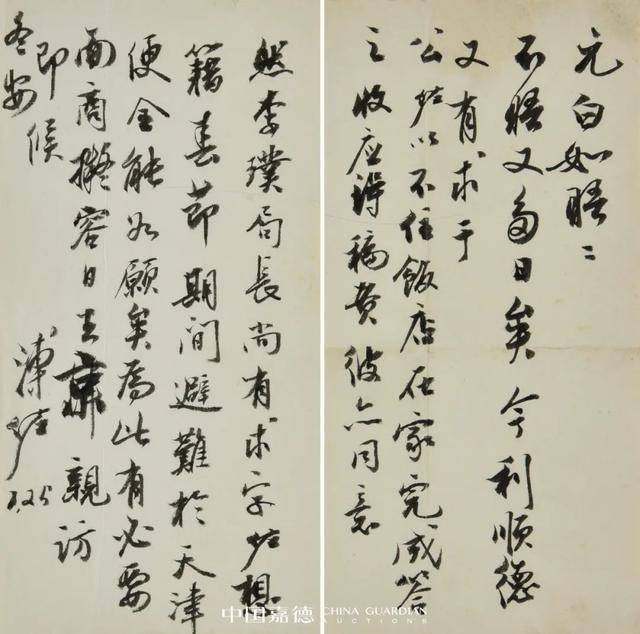 元白如晤：
不晤又多日矣今利顺德
又有求于
公炡以不住飯店在家完成答
之收应得稿费彼亦同意
然李璞局長尚有求字炡想
籍春節期間避難於天津
便全能如願矣為此有必要
面商擬容日去京親訪
即候
冬安
溥炡
1.25
中国嘉德 CHINA GUARDIAN
AUCTIONS